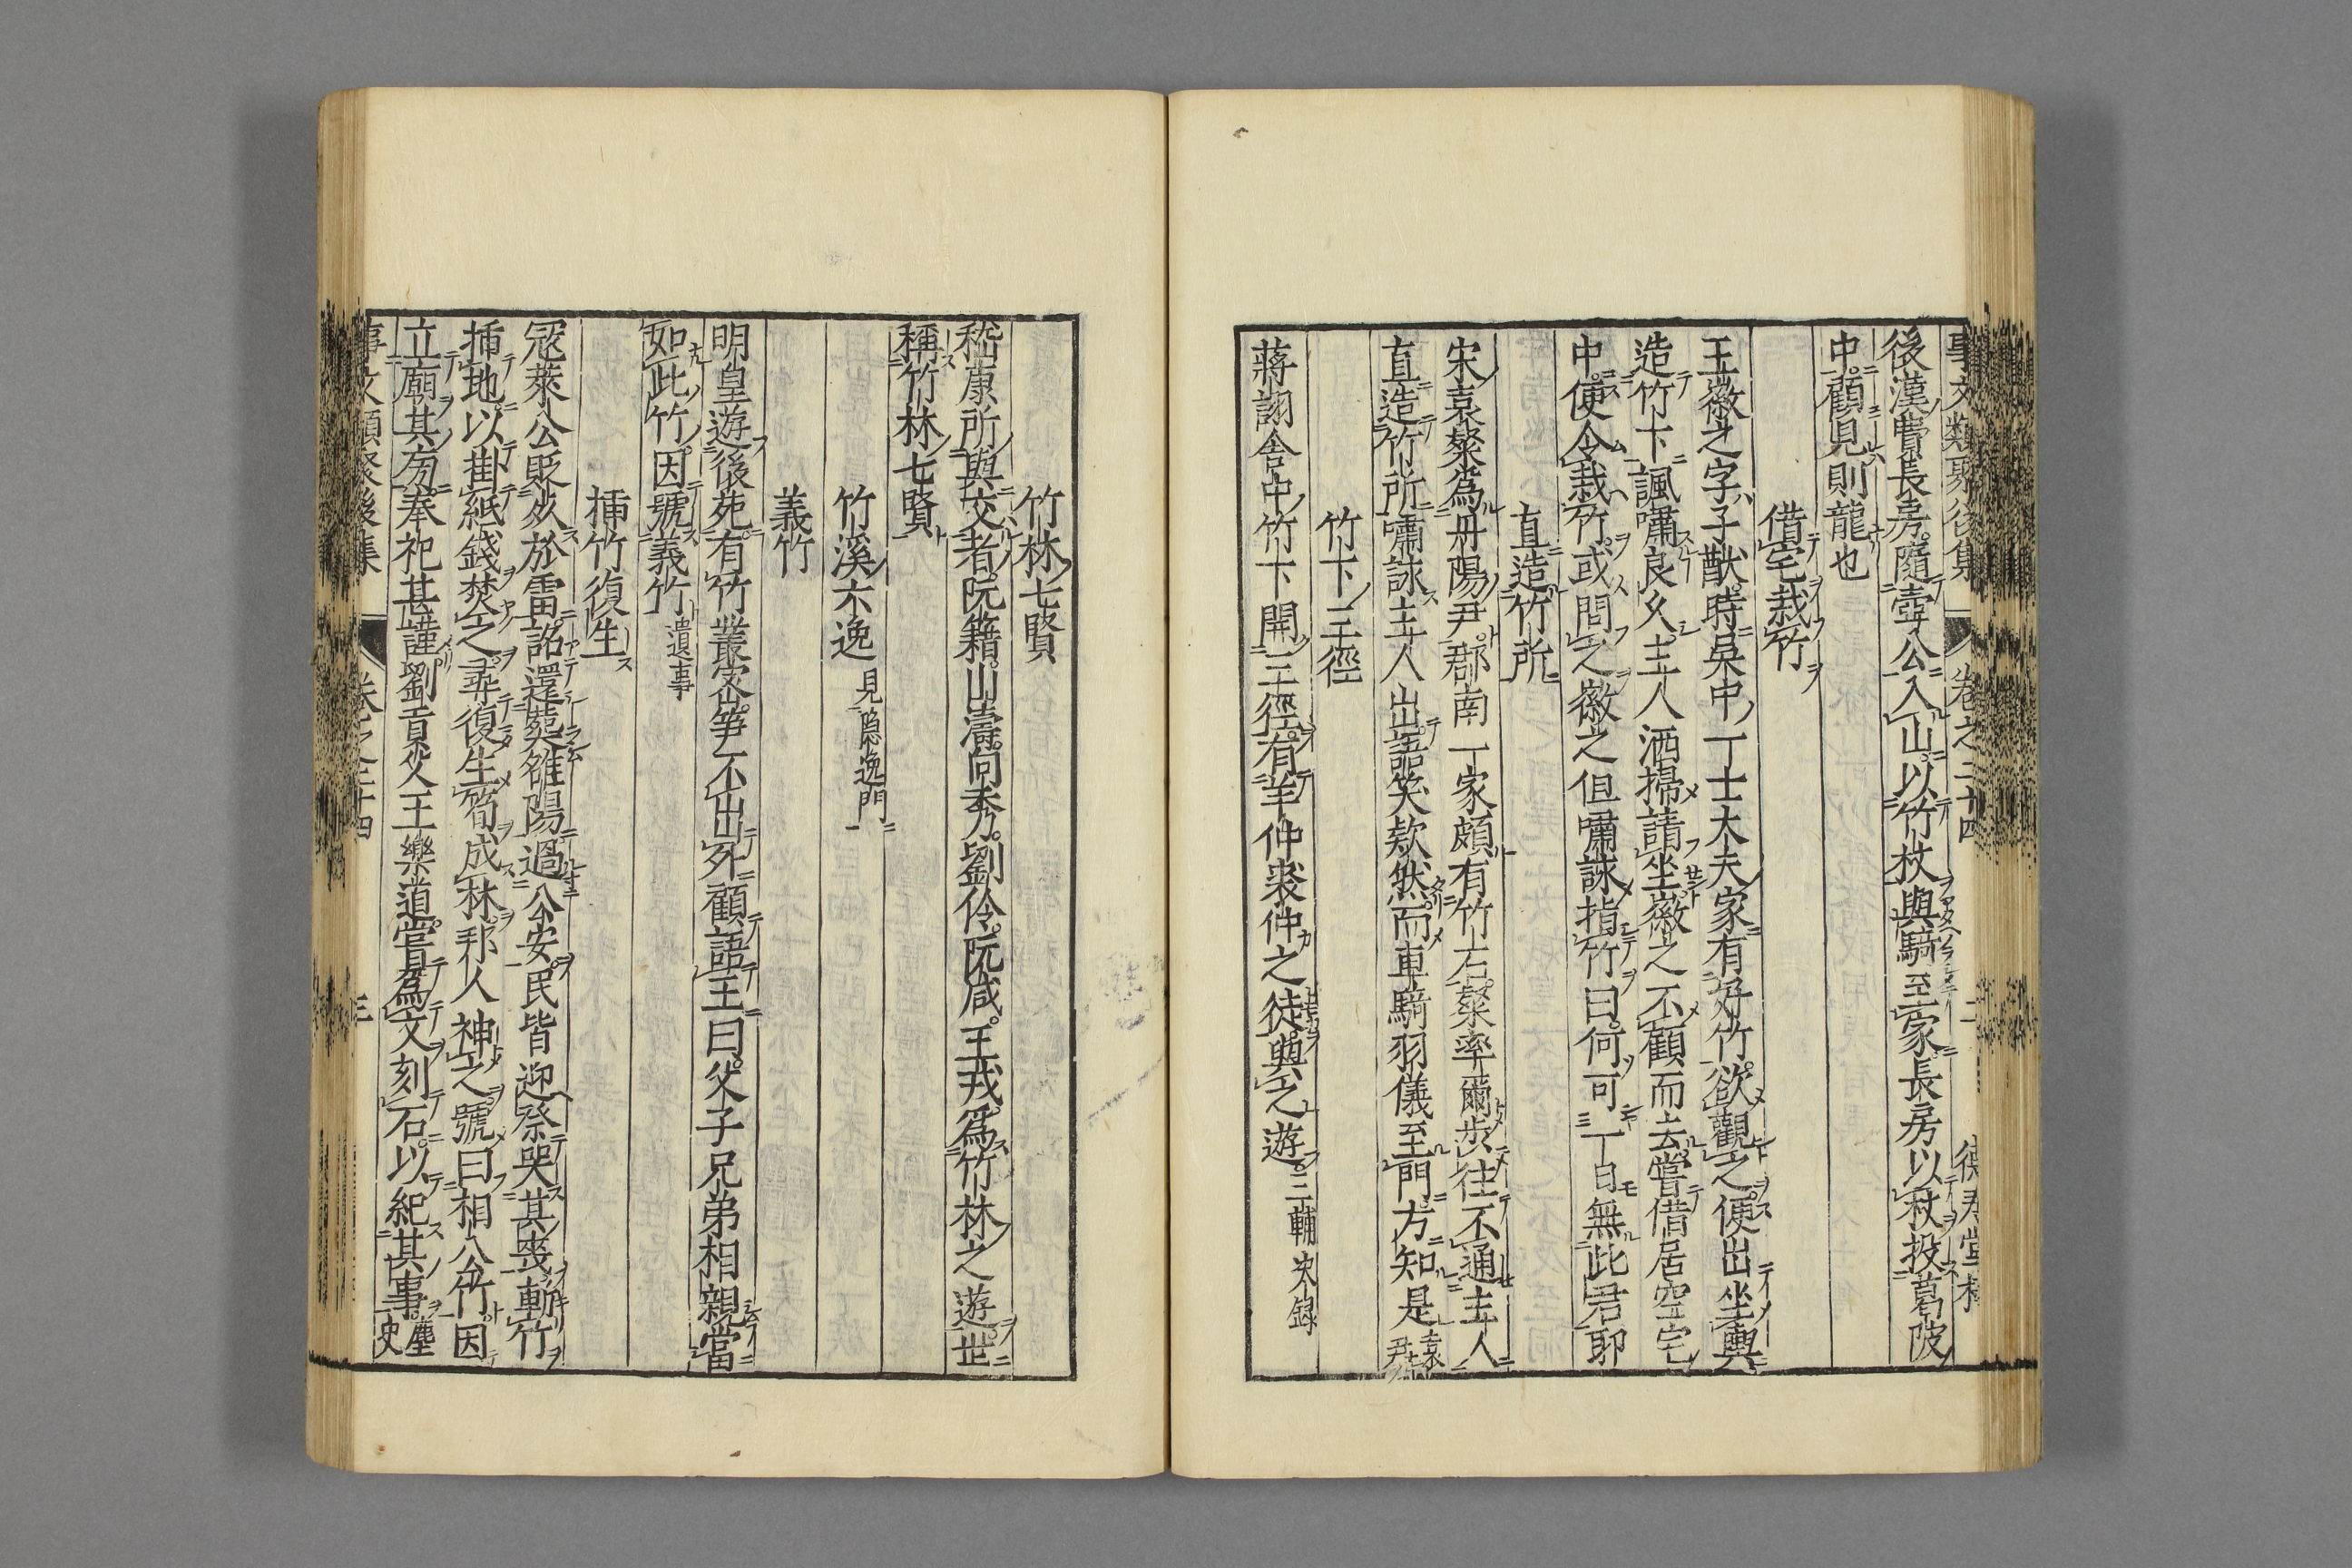 事文類聚後集 卷之二十四 二
後漢費長房隨壺公入山以竹杖與騎至家長房以杖投葛陂
中顧見則龍也
借宅栽竹
王徽之字子猷時吳中一士大夫家有好竹欲觀之便出坐輿
造竹下諷嘯良久主人洒掃請坐徽之不顧而去嘗借居空宅
中便令栽竹或問之徽之但嘯詠指竹曰何可一日無此君耶
直造竹所
宋袁粲為丹陽尹郡南一家頗有竹石粲率爾步往不通主人
直造竹所嘯詠主人出語笑欵然而車騎羽儀至門方知是袁尹
竹下三徑
蔣詡舍中竹下開三徑有羊仲裘仲之徒與之遊三輔决録
竹林七賢
嵇康所與交者阮籍山濤向秀劉伶阮咸王戎為竹林之遊世
稱竹林七賢
竹溪六逸見隱逸門
義竹
明皇遊後苑有竹叢密笋不出外顧語王曰父子兄弟相親當
如此竹因號義竹遺事
插竹復生
冦萊公貶死於雷詔還葬雒陽過公安民皆迎祭哭其喪斬竹
插地以掛紙錢焚之尋復生筍成林邦人神之號曰相公竹因
立廟其旁奉祀甚謹劉貢父王樂道嘗為文刻石以紀其事塵史
事文類聚後集 卷之二十四 三